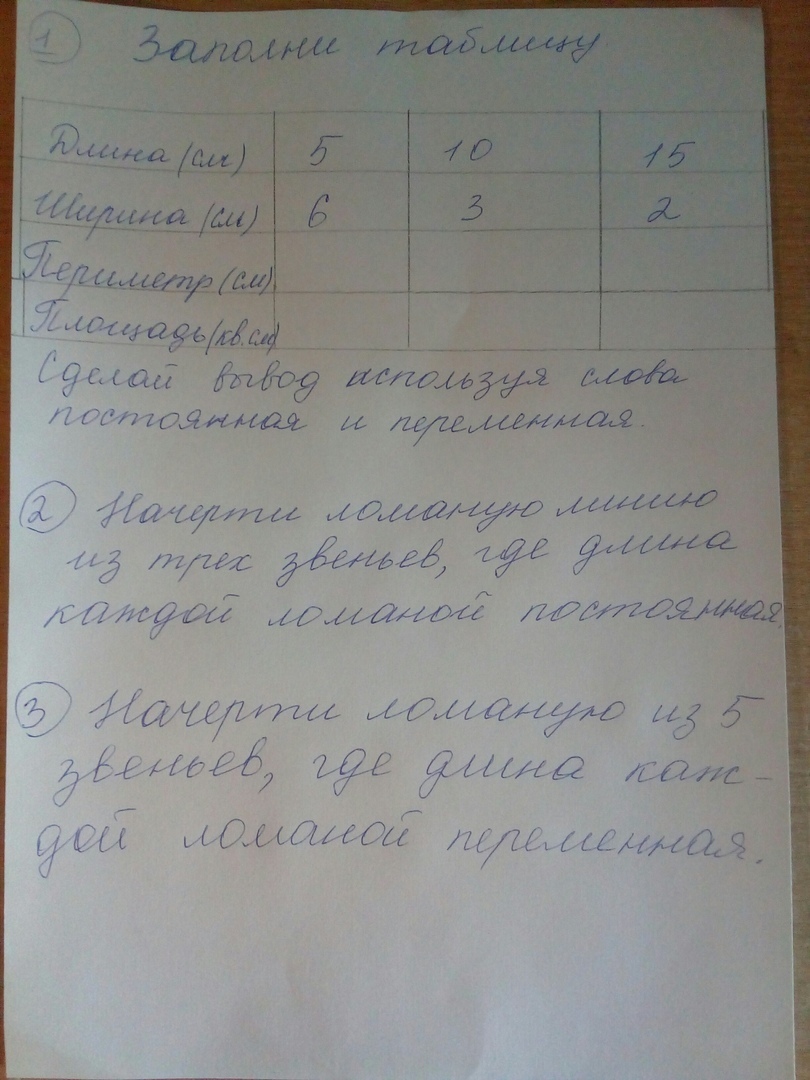 1 Заполни таблицу.
Длина (см) 5 10 15
Ширина (см) 6 3 2
Периметр (см)
Площадь (кв.см)
Сделай вывод используя слова
постоянная и переменная.
2 Начерти ломаную линию
из трех звеньев, где длина
каждой ломаной постоянная.
3 Начерти ломаную из 5
звеньев, где длина каж-
дой ломаной переменная.